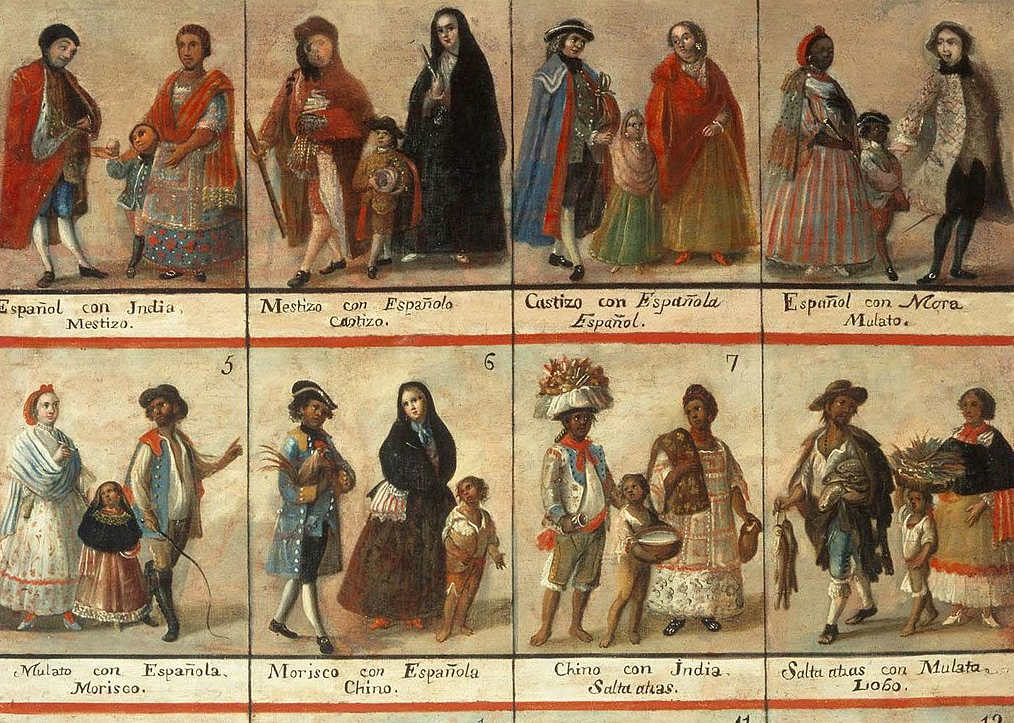 Español con India,
Mestizo.
Mestizo con Españolo
Castizo.
Castizo con Española
Español.
Español con Mora
Mulato.
5
6
7
Mulato con Española,
Morisco.
Morisco con Española
Chino.
Chino con India
Salta atras.
Salta atras con Mulata.
Lobo.
11
12